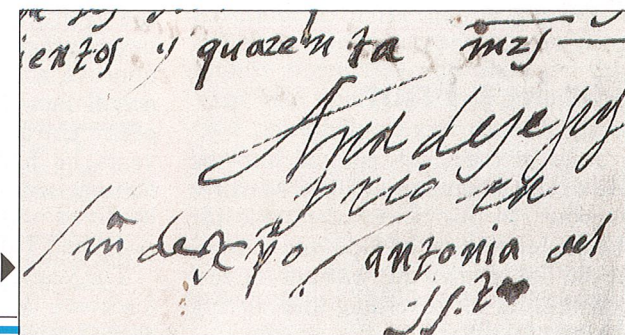 ientos y quarenta mrs
Ana de jesus
priora
m de xpo antonia del
ss.to